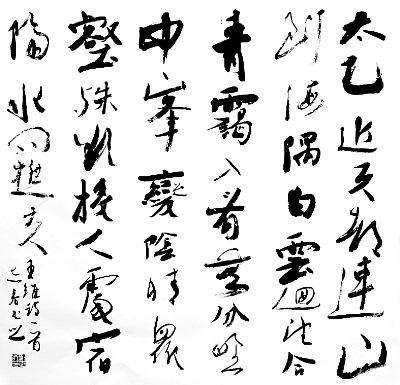 太乙近天都連山
到海隅白雲迴望合
青靄入看無分野
中峯變陰晴眾
壑殊欲投人處宿
隔水問樵夫
王維詩一首